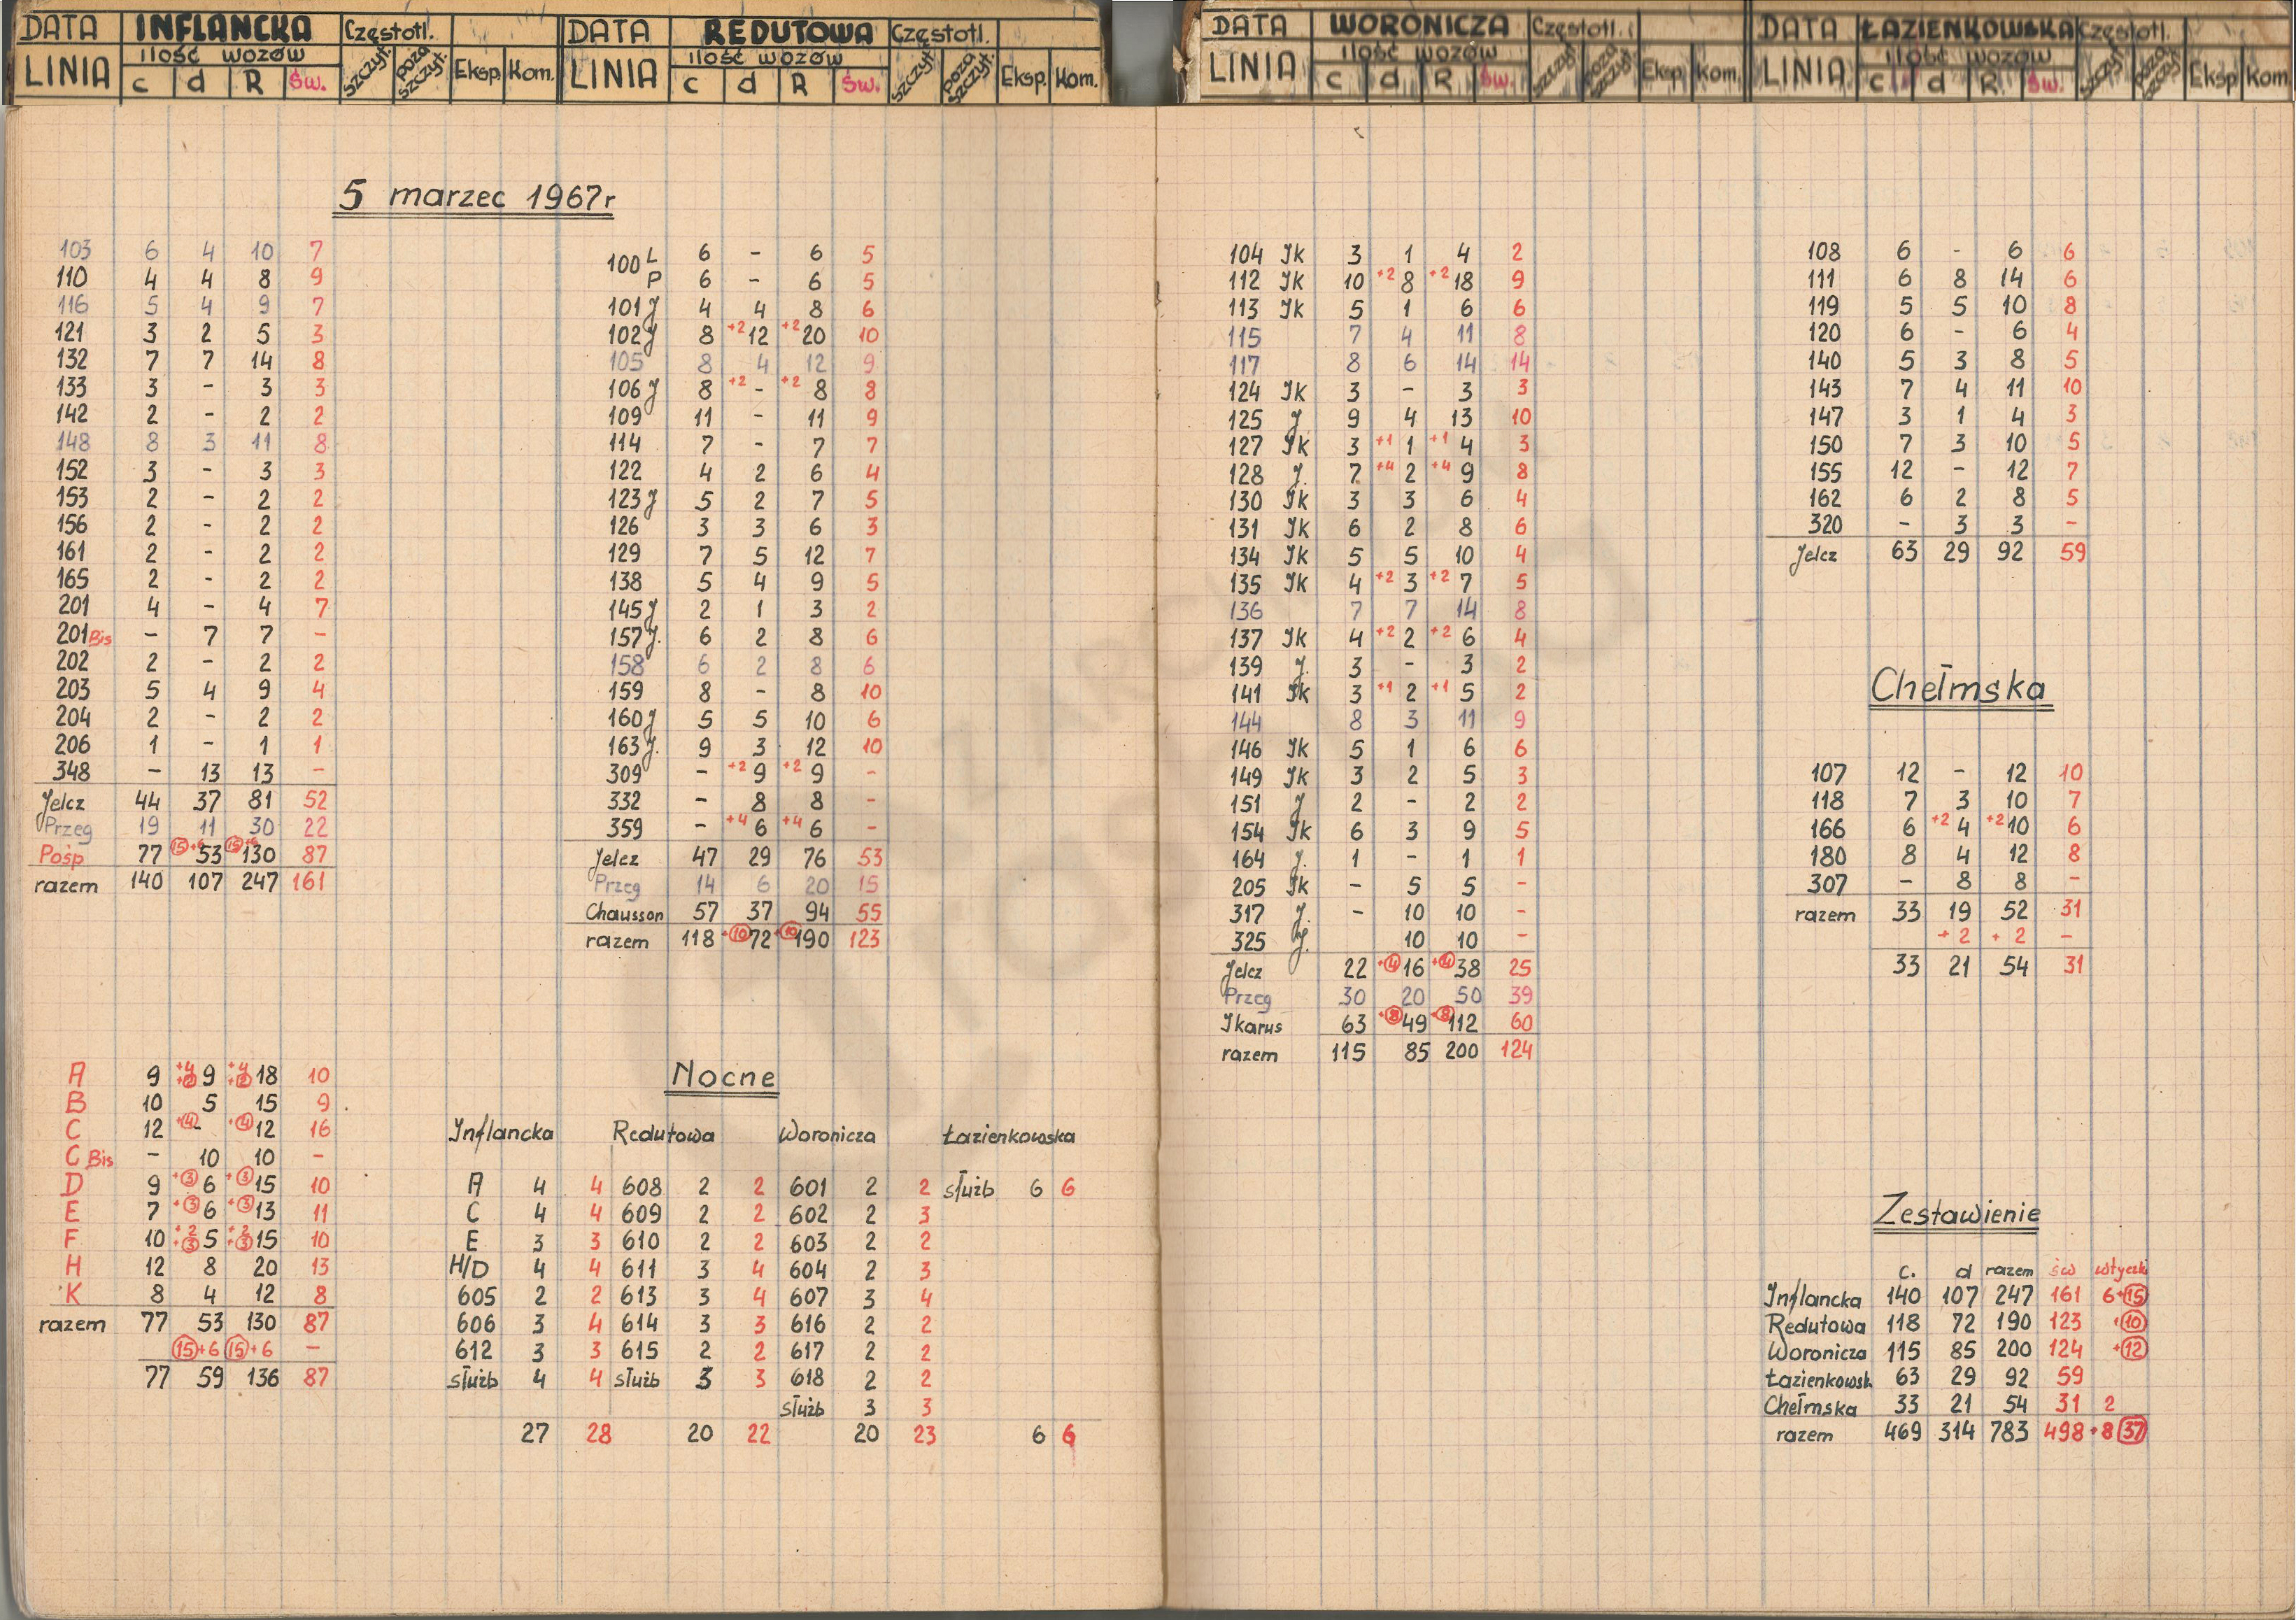 DATA INFLANCKA Częstotl.
LINIA ilość wozów c d R Św. szczyt. poza szczyt. Eksp. Kom.
5 marzec 1967r
103 6 4 10 7
110 4 4 8 9
116 5 4 9 7
121 3 2 5 3
132 7 7 14 8
133 3 - 3 3
142 2 - 2 2
148 8 3 11 8
152 3 - 3 3
153 2 - 2 2
156 2 - 2 2
161 2 - 2 2
165 2 - 2 2
201 4 - 4 7
201 Bis - 7 7 -
202 2 - 2 2
203 5 4 9 4
204 2 - 2 2
206 1 - 1 1
348 - 13 13 -
Jelcz 44 37 81 52
Przeg 19 11 30 22
Pośp 77 (15)+6 53 (15)+6 130 87
razem 140 107 247 161
A 9 +4 9 +4 18 10
B 10 5 15 9
C 12 +(4) - +(4) 12 16
C Bis - 10 10 -
D 9 +(3) 6 +(3) 15 10
E 7 +(3) 6 +(3) 13 11
F 10 +2 +(3) 5 +2 +(3) 15 10
H 12 8 20 13
K 8 4 12 8
razem 77 53 130 87
(15)+6 (15)+6 -
77 59 136 87
DATA REDUTOWA Częstotl.
LINIA ilość wozów c d R Św. szczyt. poza szczyt. Eksp. Kom.
100 L 6 - 6 5
P 6 - 6 5
101 J 4 4 8 6
102 J 8 +2 12 +2 20 10
105 8 4 12 9
106 J 8 +2 - +2 8 8
109 11 - 11 9
114 7 - 7 7
122 4 2 6 4
123 J 5 2 7 5
126 3 3 6 3
129 7 5 12 7
138 5 4 9 5
145 J 2 1 3 2
157 J. 6 2 8 6
158 6 2 8 6
159 8 - 8 10
160 J 5 5 10 6
163 J. 9 3 12 10
309 - +2 9 +2 9 -
332 - 8 8 -
359 - +4 6 +4 6 -
Jelcz 47 29 76 53
Przeg 14 6 20 15
Chausson 57 37 94 55
razem 118 +(10) 72 +(10) 190 123
Nocne
Inflancka Redutowa Woronicza Łazienkowska
A 4 4 608 2 2 601 2 2 służb 6 6
C 4 4 609 2 2 602 2 3
E 3 3 610 2 2 603 2 2
H/D 4 4 611 3 4 604 2 3
605 2 2 613 3 4 607 3 4
606 3 4 614 3 3 616 2 2
612 3 3 615 2 2 617 2 2
służb 4 4 służb 3 3 618 2 2
służb 3 3
27 28 20 22 20 23 6 6
DATA WORONICZA Częstotl.
LINIA ilość wozów c d R Św. szczyt. poza szczyt. Eksp. Kom.
104 Ik 3 1 4 2
112 Ik 10 +2 8 +2 18 9
113 Ik 5 1 6 6
115 7 4 11 8
117 8 6 14 14
124 Ik 3 - 3 3
125 J. 9 4 13 10
127 Ik 3 +1 1 +1 4 3
128 J. 7 +4 2 +4 9 8
130 Ik 3 3 6 4
131 Ik 6 2 8 6
134 Ik 5 5 10 4
135 Ik 4 +2 3 +2 7 5
136 7 7 14 8
137 Ik 4 +2 2 +2 6 4
139 J. 3 - 3 2
141 Ik 3 +1 2 +1 5 2
144 8 3 11 9
146 Ik 5 1 6 6
149 Ik 3 2 5 3
151 J 2 - 2 2
154 Ik 6 3 9 5
164 J. 1 - 1 1
205 Ik - 5 5 -
317 J. - 10 10 -
325 J. 10 10 -
Jelcz 22 +(4) 16 +(4) 38 25
Przeg 30 20 50 39
Ikarus 63 +(8) 49 +(8) 112 60
razem 115 85 200 124
DATA ŁAZIENKOWSKA Częstotl.
LINIA ilość wozów c d R Św. szczyt. poza szczyt. Eksp Kom
108 6 - 6 6
111 6 8 14 6
119 5 5 10 8
120 6 - 6 4
140 5 3 8 5
143 7 4 11 10
147 3 1 4 3
150 7 3 10 5
155 12 - 12 7
162 6 2 8 5
320 - 3 3 -
Jelcz 63 29 92 59
Chełmska
107 12 - 12 10
118 7 3 10 7
166 6 +2 4 +2 10 6
180 8 4 12 8
307 - 8 8 -
razem 33 19 52 31
+2 +2 -
33 21 54 31
Zestawienie
c. d razem św wtyczki
Inflancka 140 107 247 161 6+(15)
Redutowa 118 72 190 123 +(10)
Woronicza 115 85 200 124 +(12)
Łazienkowsk. 63 29 92 59
Chełmska 33 21 54 31 2
razem 469 314 783 498 +8 (37)